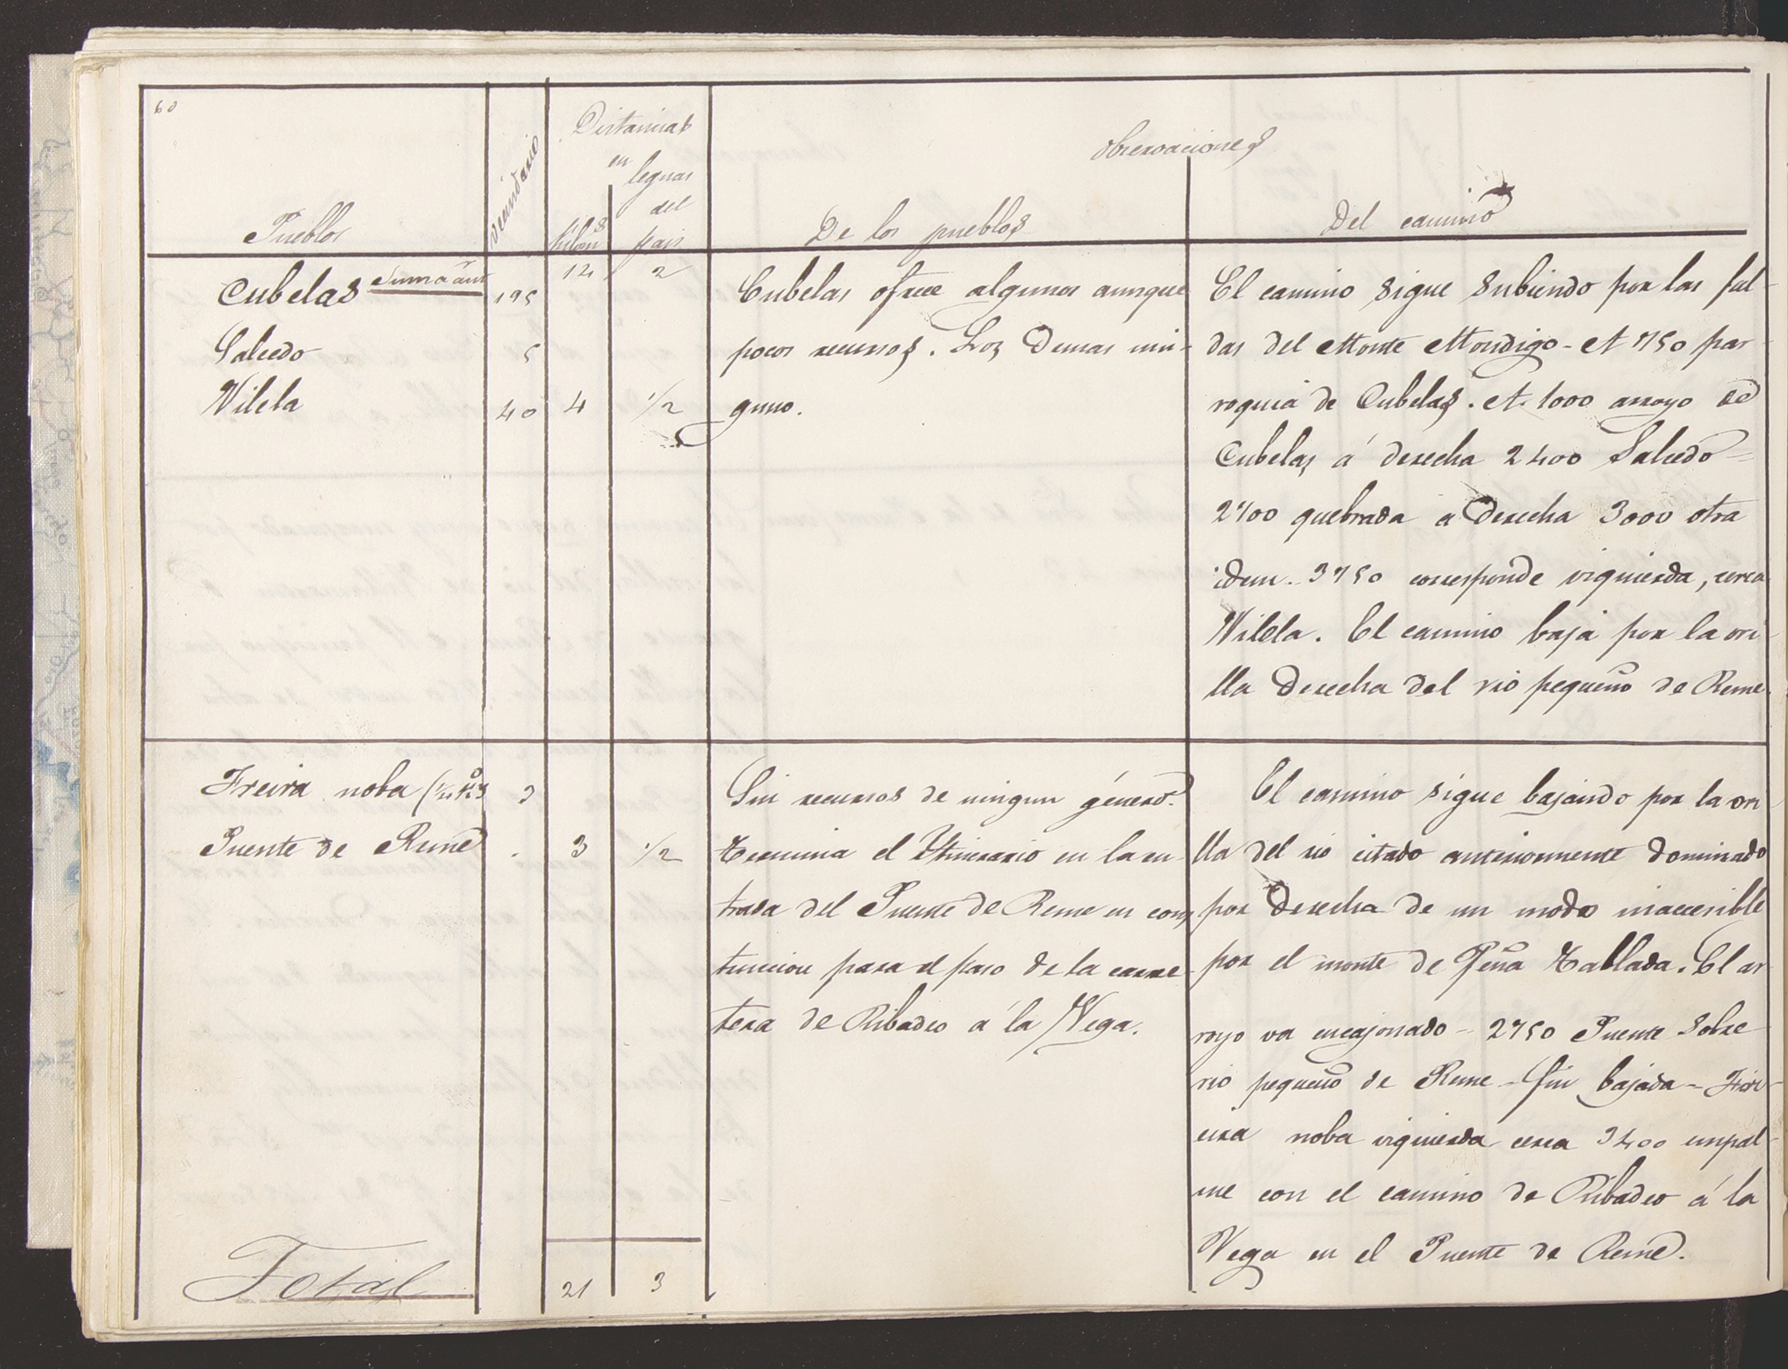 60
Pueblos
Vecindario
Distancias
en
kilom.s
leguas
del
pais
Observaciones
De los pueblos
Del camino
Suma ant
12 2
Cubelas 195
Salcedo 5
Vilela 40 4 1/2
Cubelas ofrece algunos aunque
pocos recursos. Los demas nin-
guno.
El camino sigue subiendo por las fal-
das del Monte Mondigo - A 750 par-
roquia de Cubelas. A 1000 arroyo de
Cubelas á derecha 2400 Salcedo -
2700 quebrada a derecha 3000 otra
idem. 3750 corresponde izquierda, cerca
Vilela. El camino baja por la ori-
lla derecha del rio pequeño de Reme
Freira noba 3
Puente de Reme . 3 1/2
Sin recursos de ningun género.
Termina el Ytinerario en la en-
trada del Puente de Reme en cons
truccion para el paso de la carre-
tera de Ribadeo á la Vega.
El camino sigue bajando por la ori
lla del rio citado anteriormente dominado
por derecha de un modo inaccesible
por el monte de Peña Tallada. El ar-
royo va encajonado - 2750 Puente sobre
rio pequeño de Reme - Fin bajada - Frei-
eira noba izquierda cerca 3400 empal-
me con el camino de Ribadeo á la
Vega en el Puente de Reme.
Total 21 3